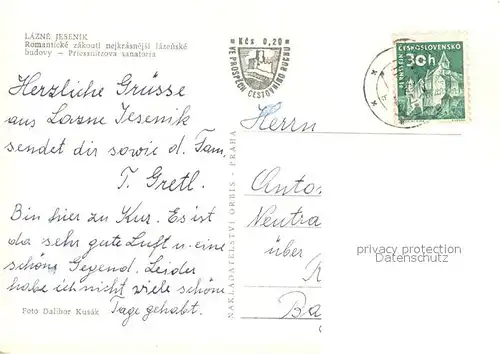 LÁZNĚ JESENÍK
Romantické zákoutí nejkrásnější lázeňské
budovy – Priessnitzova sanatoria
Herzliche Grüsse
aus Lazne Jesenik
sendet dir sowie d. Fam.
T. Gretl.
Bin hier zu Kur. Es ist
da sehr gute Luft u. eine
schöne Gegend. Leider
habe ich nicht viele schöne
Tage gehabt.
Foto Dalibor Kusák
NAKLADATELSTVÍ ORBIS - PRAHA
Kčs 0,20
VE PROSPĚCH CESTOVNÍHO RUCHU
ČESKOSLOVENSKO
30h
PERNŠTEJN
Herrn
Anto
Neutra
über
Ba
privacy protection
Datenschutz